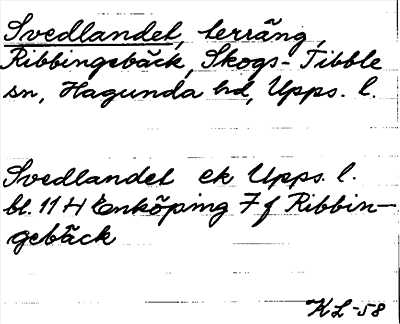 Svedlandet, terräng,
Ribbingebäck, Skogs-Tibble
sn, Hagunda hd, Upps. l.
Svedlandet ek Upps. l.
bl. 11 H Enköping 7 f Ribbin-
gebäck
KL-58